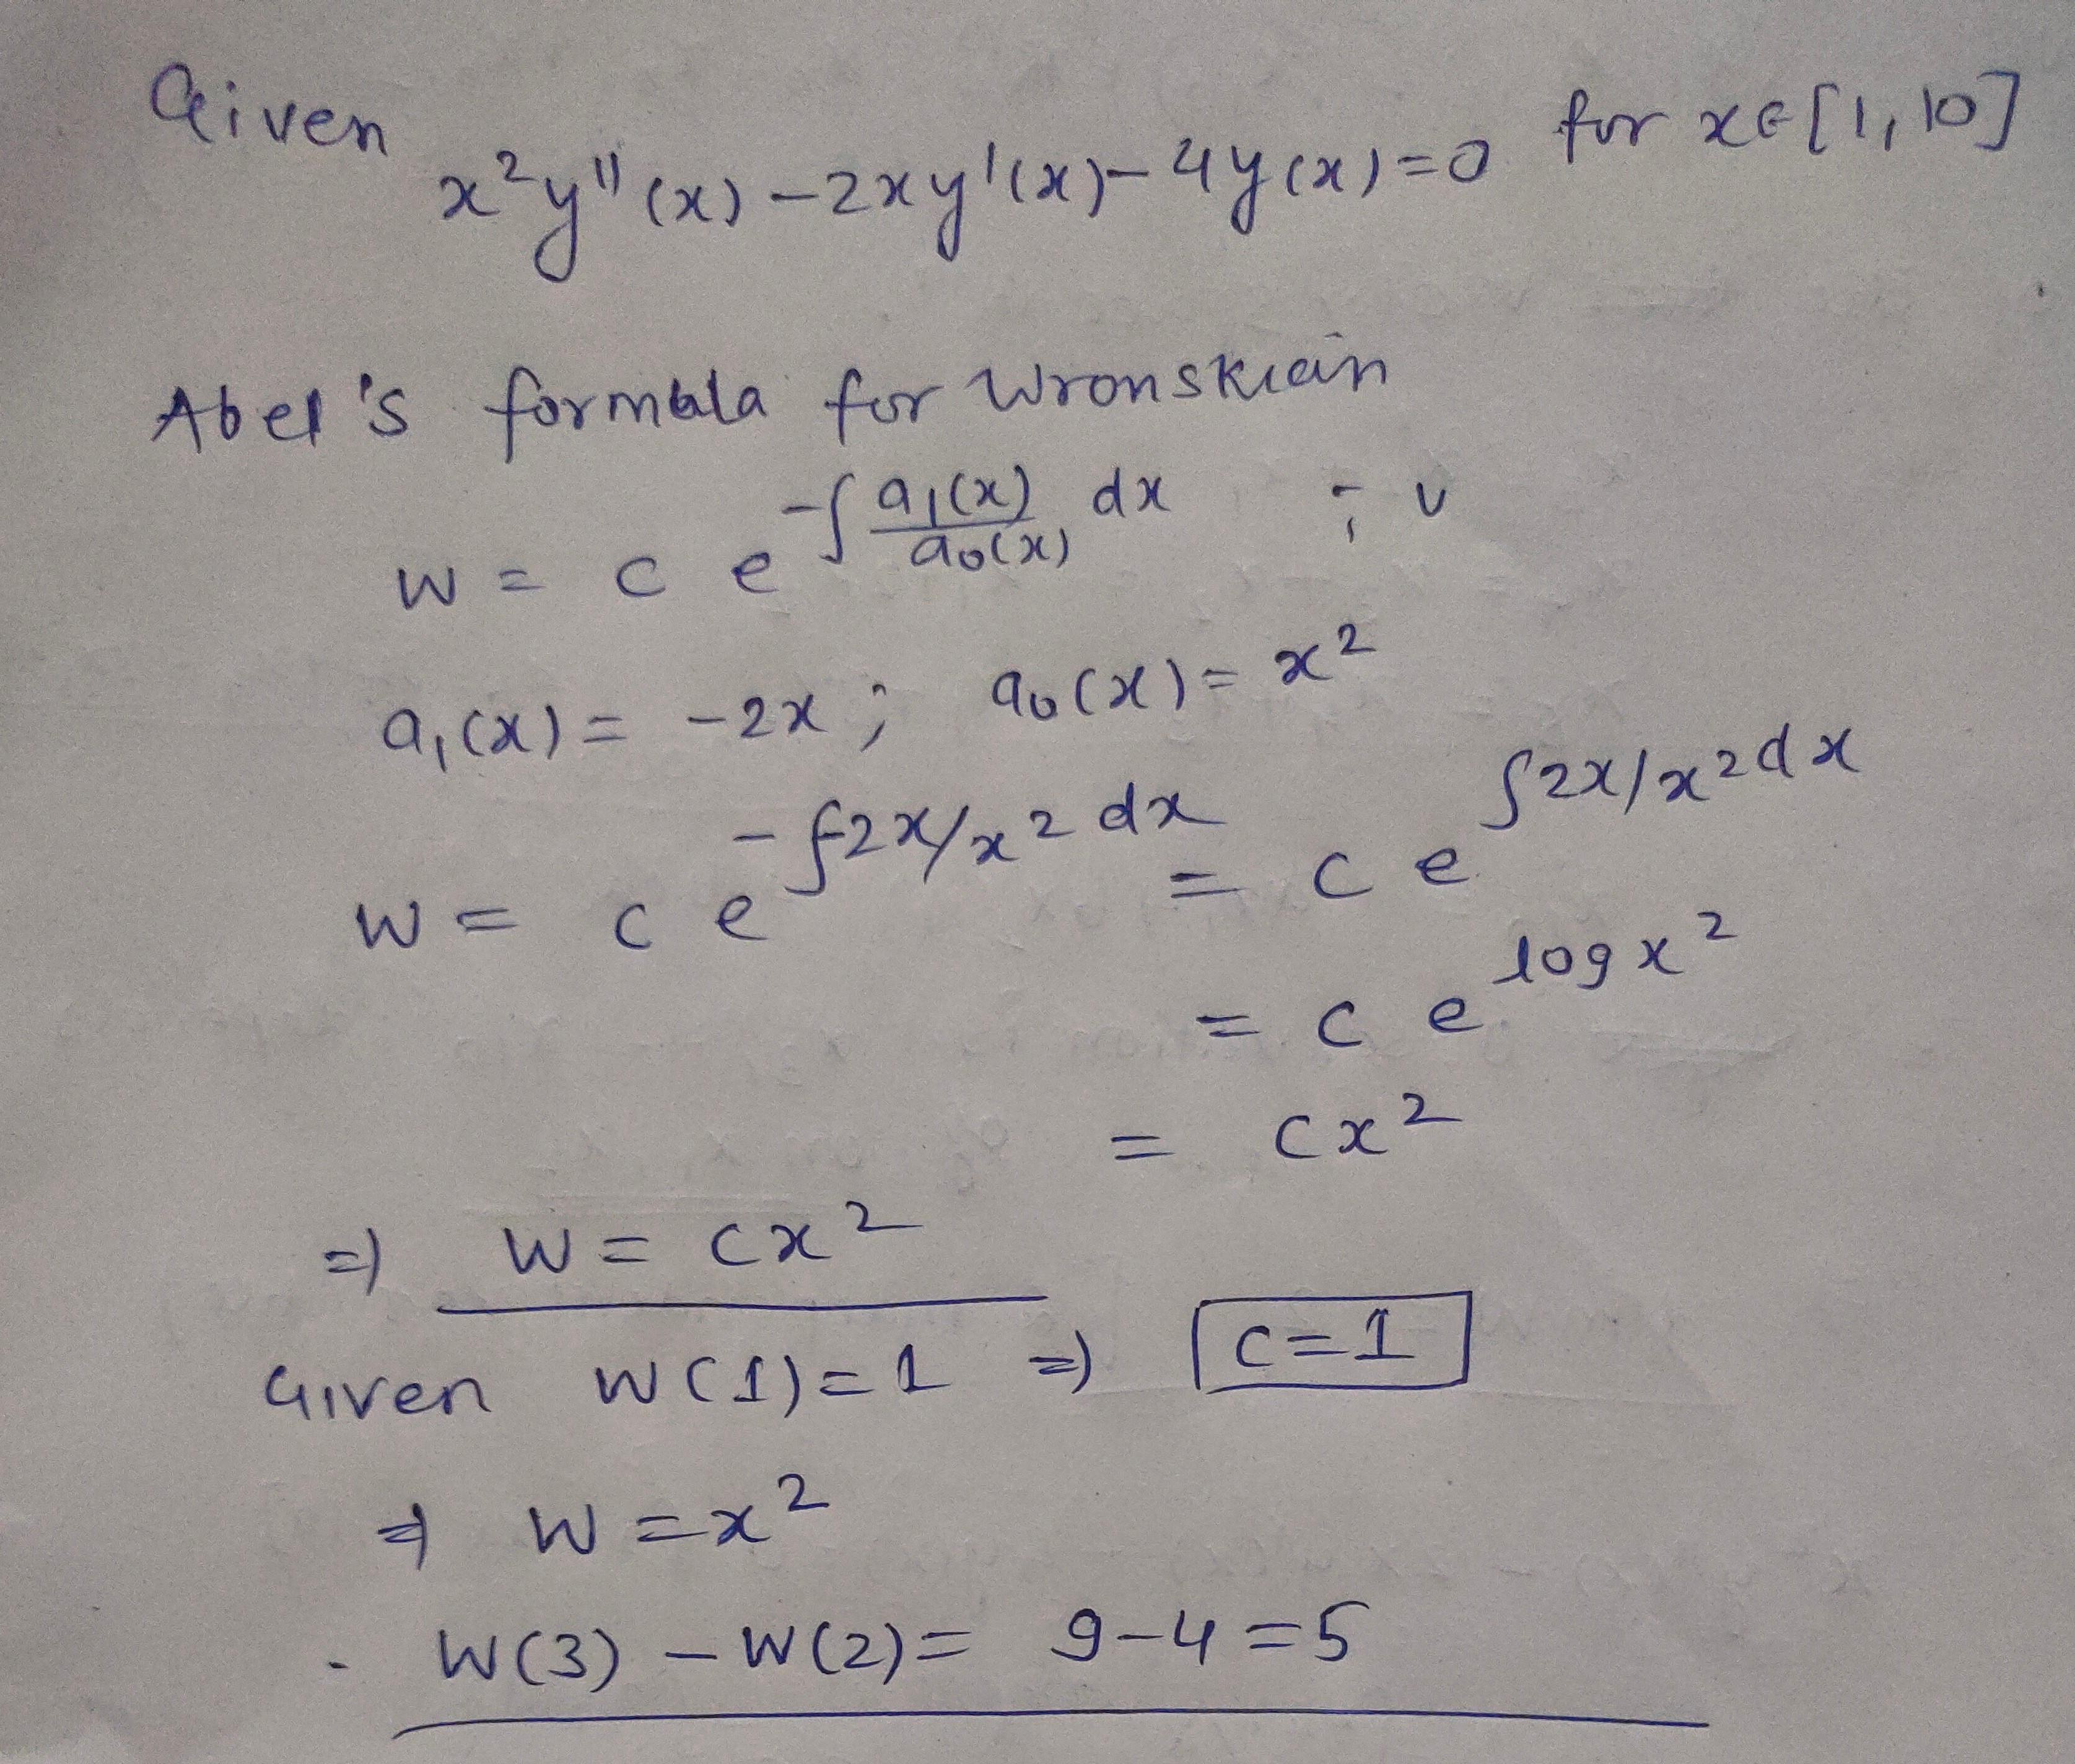 Given x²y''(x) - 2xy'(x) - 4y(x) = 0 for x∈[1, 10]
Abel's formula for Wronskian
W = c e^{-∫ a₁(x)/a₀(x) dx} ;
a₁(x) = -2x ; a₀(x) = x²
W = c e^{-∫-2x/x² dx} = c e^{∫2x/x² dx}
= c e^{log x²}
= cx²
=) W = cx²
Given W(1) = 1 =) c = 1
=) W = x²
W(3) - W(2) = 9-4 = 5